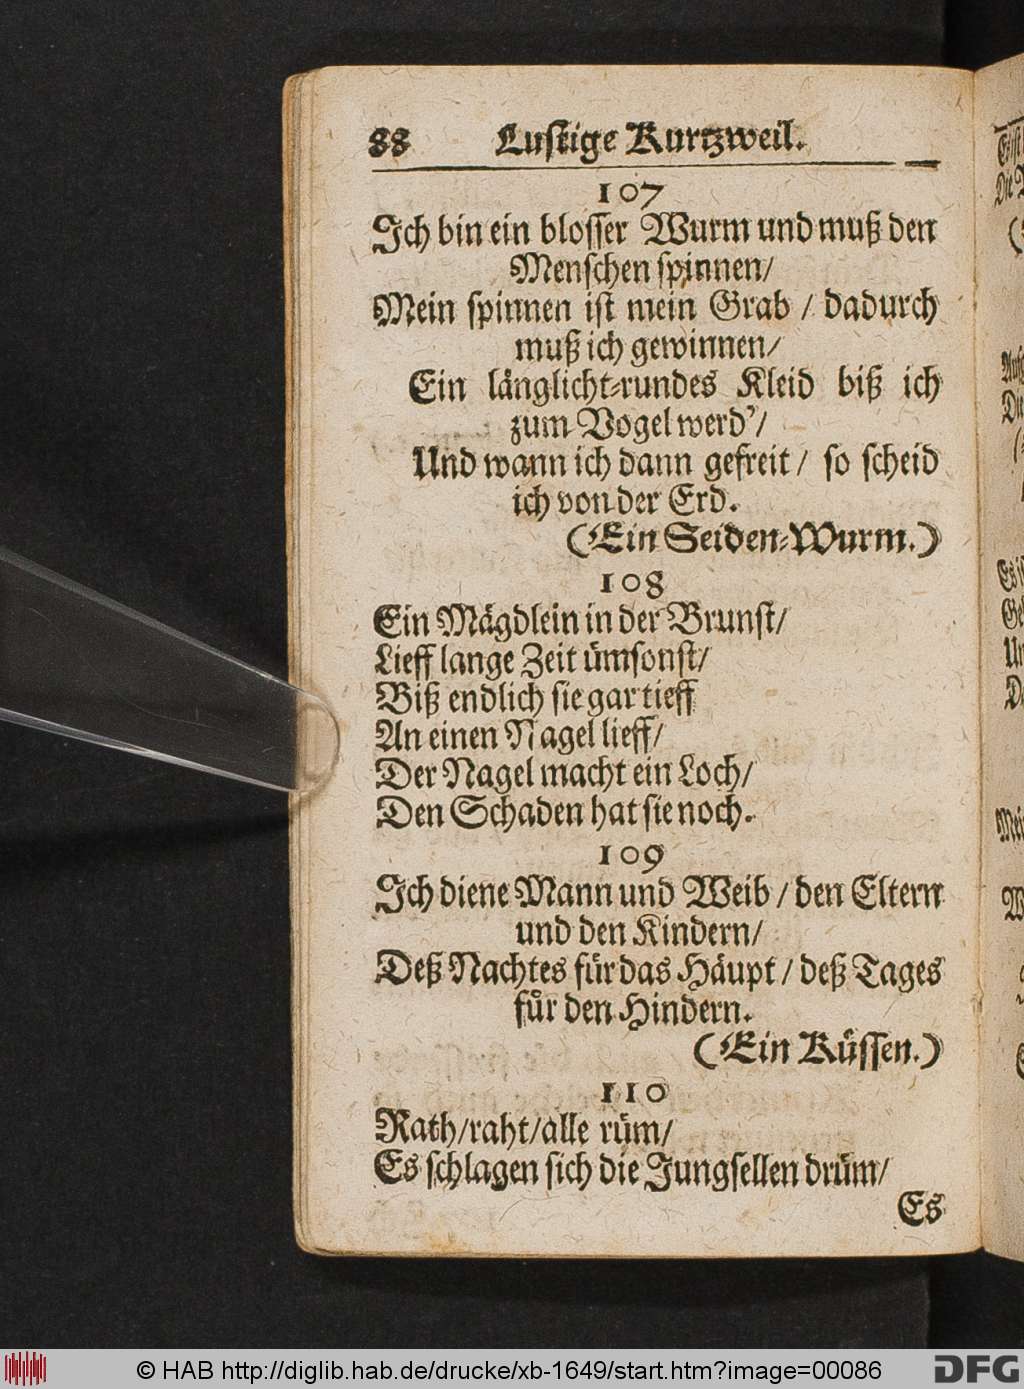 88 Lustige Kurtzweil.
107
Ich bin ein blosser Wurm und muß den
Menschen spinnen/
Mein spinnen ist mein Grab / dadurch
muß ich gewinnen/
Ein länglicht-rundes Kleid biß ich
zum Vogel werd'/
Und wann ich dann gefreit / so scheid
ich von der Erd.
(Ein Seiden-Wurm.)
108
Ein Mägdlein in der Brunst/
Lieff lange Zeit ümsonst/
Biß endlich sie gar tieff
An einen Nagel lieff/
Der Nagel macht ein Loch/
Den Schaden hat sie noch.
109
Ich diene Mann und Weib / den Eltern
und den Kindern/
Deß Nachtes für das Häupt / deß Tages
für den Hindern.
(Ein Küssen.)
110
Rath/raht/alle rüm/
Es schlagen sich die Jungsellen drüm/
Es
© HAB http://diglib.hab.de/drucke/xb-1649/start.htm?image=00086
DFG